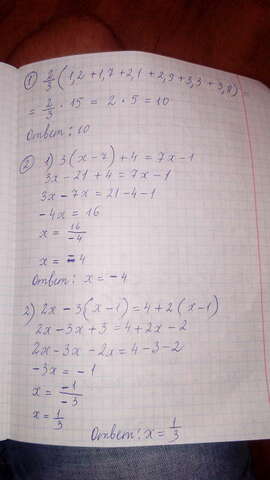 ① 2/3 (1,2 + 1,7 + 2,1 + 2,9 + 3,3 + 3,8) =
= 2/3 · 15 = 2 · 5 = 10
Ответ: 10
② 1) 3(x - 7) + 4 = 7x - 1
3x - 21 + 4 = 7x - 1
3x - 7x = 21 - 4 - 1
-4x = 16
x = 16/-4
x = -4
Ответ: x = -4
2) 2x - 3(x - 1) = 4 + 2(x - 1)
2x - 3x + 3 = 4 + 2x - 2
2x - 3x - 2x = 4 - 3 - 2
-3x = -1
x = -1/-3
x = 1/3
Ответ: x = 1/3